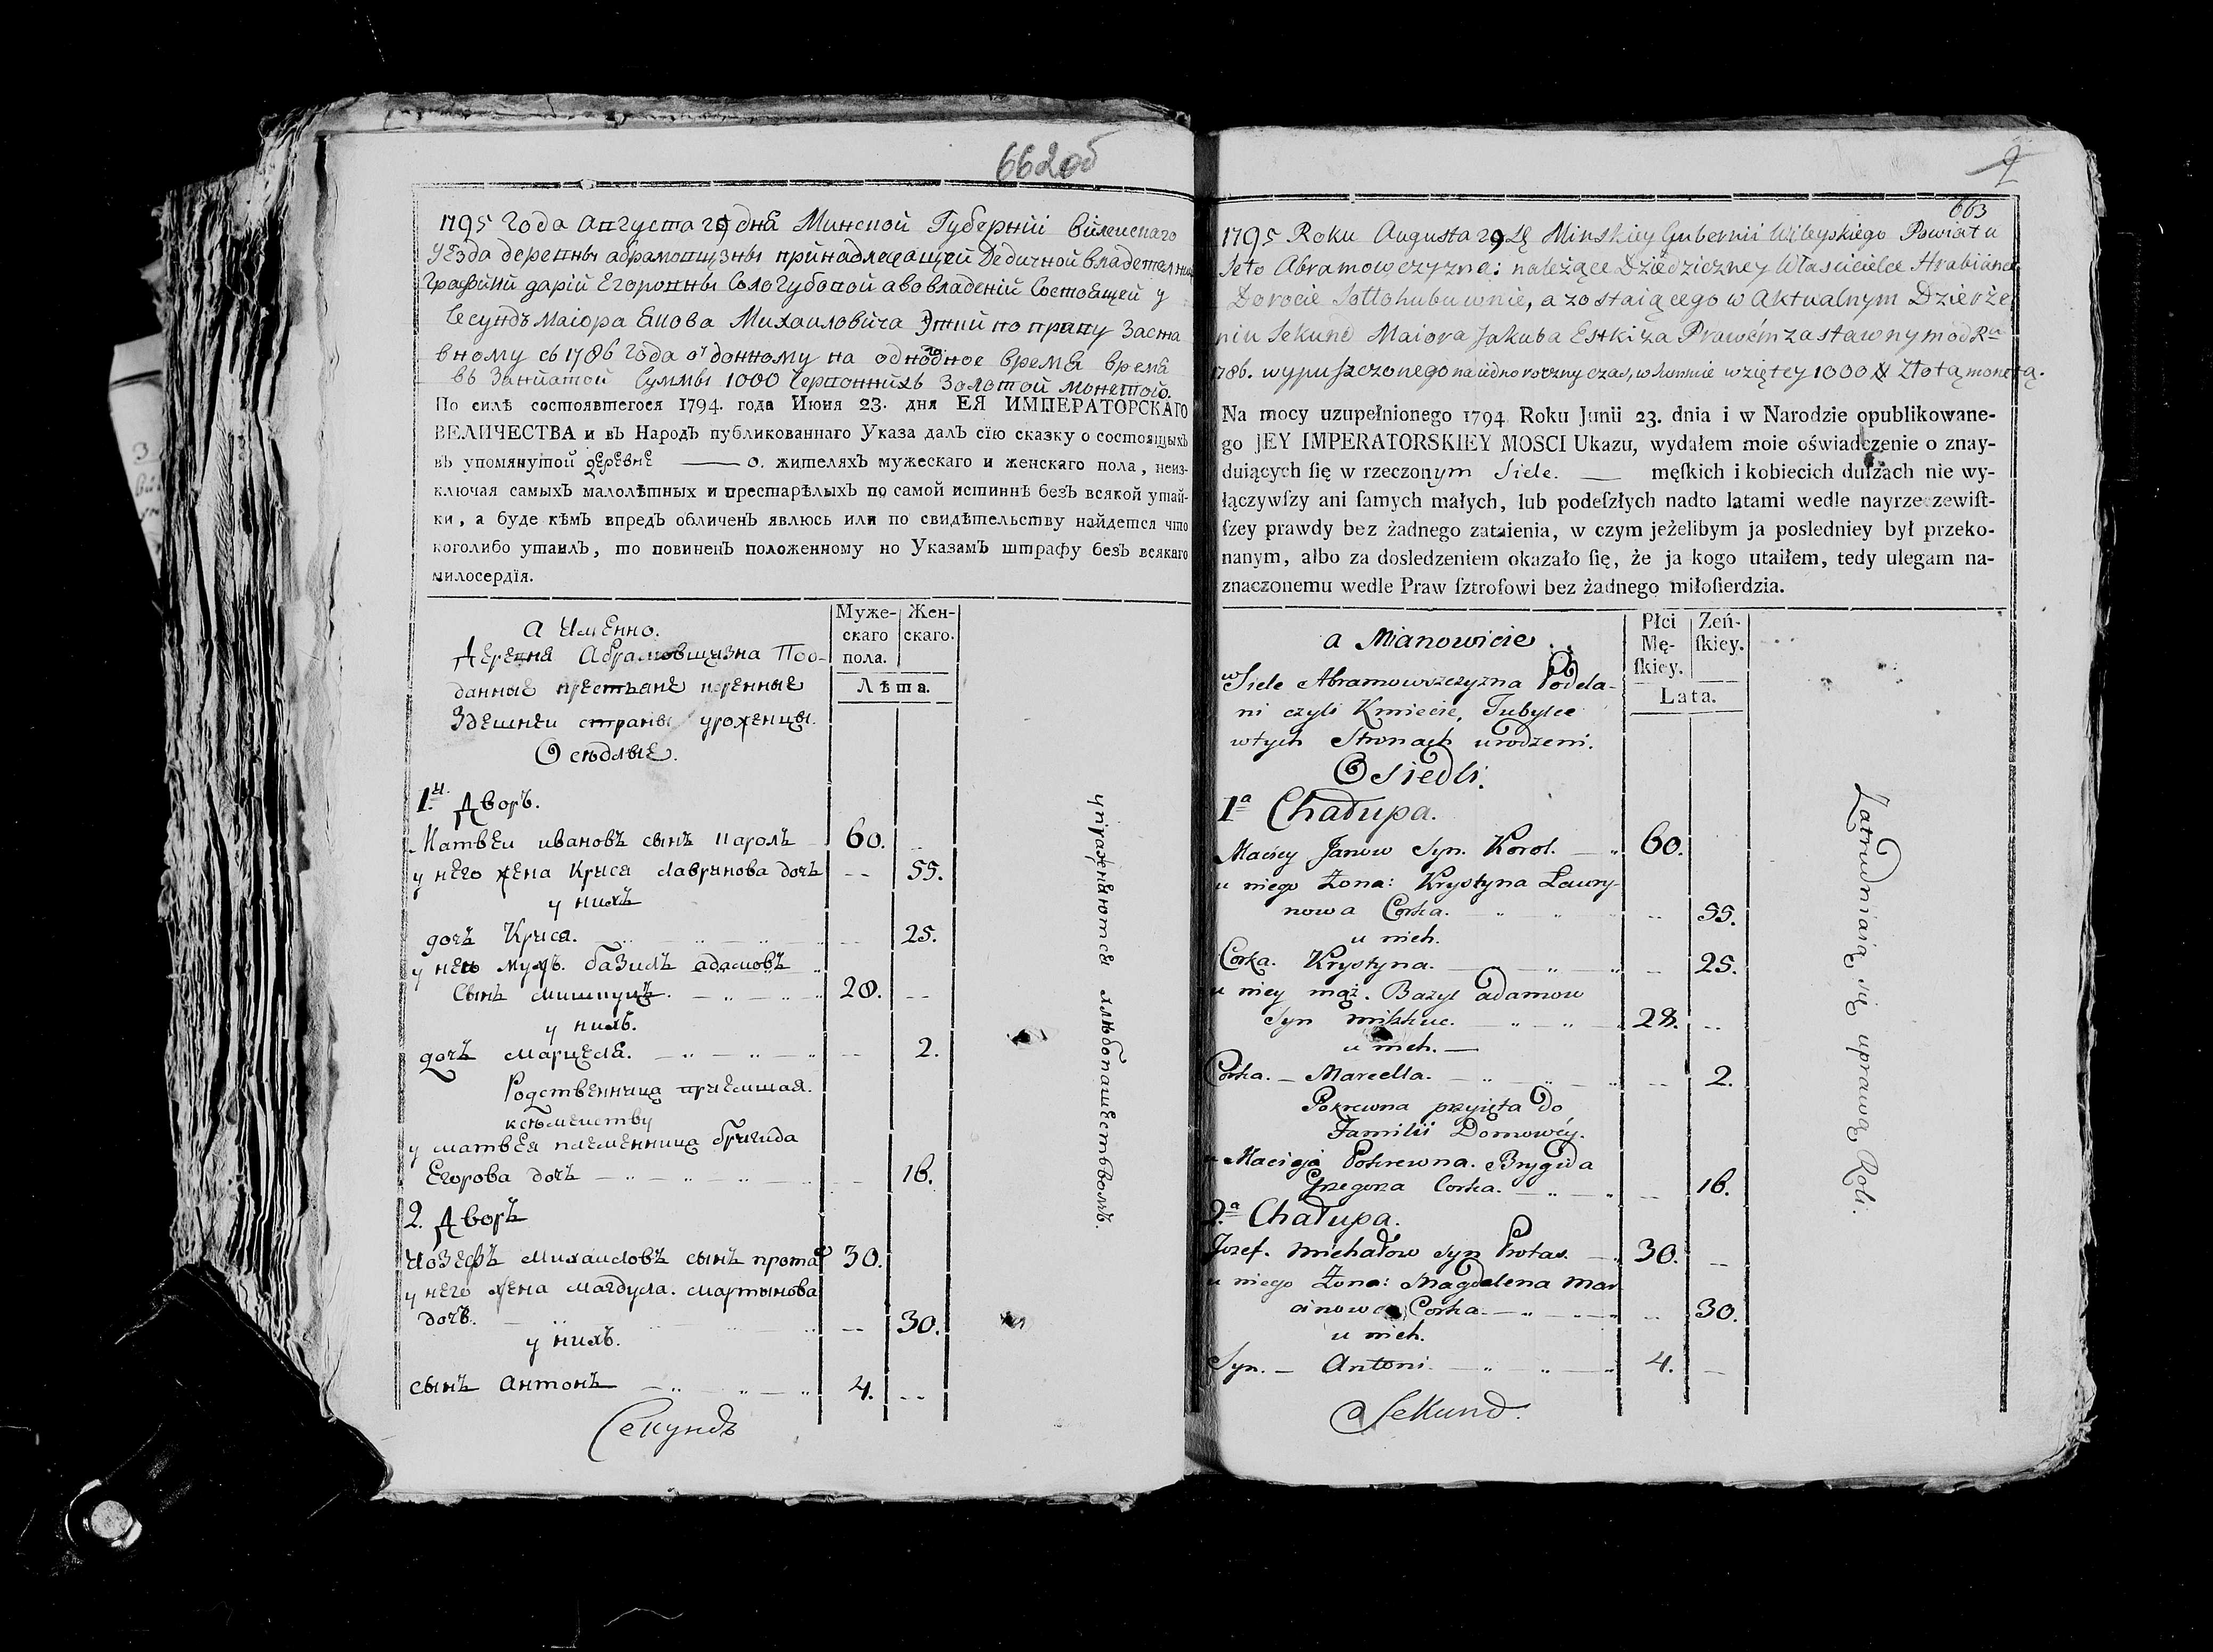 662об
1795 Года Августа 29 дня Минской Губерніи Вилейскаго
уѣзда деревни абрамовщизны принадлежащей Дедичной владетелнице
Графини дарій Егоровны Сологубовой а во владеній Состоящей у
Секундъ Маіора Якова Михаиловича Эткий по праву Заста
вному съ 1786 года отданному на однодное время время
въ Занйатой Суммы 1000 Червонныхъ Золотой монетою.
По силѣ состоявшегося 1794. года Июня 23. дня ЕЯ ИМПЕРАТОРСКАГО
ВЕЛИЧЕСТВА и въ Народъ публикованнаго Указа далъ сїю сказку о состоящыхъ
въ упомянутой деревне о. жителяхъ мужескаго и женскаго пола, неиз-
ключая самыхъ малолѣтныхъ и престарѣлыхъ по самой истиннѣ безъ всякой утай-
ки, а буде кѣмъ впредъ обличенъ явлюсь или по свидѣтельству найдется что
коголибо утаилъ, то повиненъ положенному по Указамъ штрафу безъ всякаго
милосердїя.
Муже-
скаго
пола.
Жен-
скаго.
Лѣта.
а Именно.
Деревня Абрамовщизна Под-
данные крестьяне коренные
Здешнеи страны уроженцы.
Оседлые.
1й. Дворъ.
Матвеи ивановъ сынъ Кароль 60.
у него жена Крыся Лавринова дочь 55.
у нихъ
дочь Крыся. 25.
у нею мужъ. базиль адамовъ
Сынъ мишкуць. 28.
у нихъ.
дочь марцеля. 2.
Родственница приемшая.
ксѣмеиству
у матвея племенница бригида
Егорова дочь 16.
2. Дворъ
Иозефъ Михаиловъ сынъ протас 30.
у него жена магдуся. мартынова
дочь. 30.
у нихъ.
сынъ Антонъ 4.
Секундъ
упражняются хлѣбопашествомъ.
2
663
1795 Roku Augusta 29 dę Minskiey Gubernii Wileyskiego Powiatu
Seło Abramowczyzna: należące Dziedziczney Właścicielce Hrabiance
Dorocie Sołłohubuwnie, a zostaiącego w Aktualnym Dzierże
niu Sekund Maiora Jakuba Estki za Prawem zastawnym od Ru
1786. wypuszczonego na iedno roczny czas, w Summie wziętey 1000 Złotą monetą.
Na mocy uzupełnionego 1794 Roku Junii 23. dnia i w Narodzie opublikowane-
go JEY IMPERATORSKIEY MOSCI Ukazu, wydałem moie oświadczenie o znay-
duiących ſię w rzeczonym Siele. męſkich i kobiecich duſzach nie wy-
łączywſzy ani ſamych małych, lub podeſzłych nadto latami wedle nayrzeczewiſt-
ſzey prawdy bez żadnego zataienia, w czym jeżelibym ja posledniey był przeko-
nanym, albo za dosledzeniem okazało ſię, że ja kogo utaiłem, tedy ulegam na-
znaczonemu wedle Praw ſztrofowi bez żadnego miłoſierdzia.
Płci
Mę-
ſkiey.
Zeń-
ſkiey.
Lata.
a Mianowicie
w Siele Abramowszczyzna Podda-
ni czyli Kmiecie, Tubylce
w tych Stronach urodzeni.
Osiedli.
1a Chałupa.
Maciey Janow Syn. Korol. 60.
u niego Żona: Krystyna Lawry-
nowa Corka. 55.
u nich.
Corka. Krystyna. 25.
u niey mąż. Bazyl adamow
Syn Miszkuc. 28.
u nich.
Corka. Marcella. 2.
Pokrewna przyięta do
Familii Domowey.
u Macieja Pokrewna. Brygida
Grzegorza Corka. 16.
2.a Chałupa.
Jozef. Michałow syn Protas. 30.
u niego Żona: Magdalena Mar
cinowa Corka. 30.
u nich.
Syn. Antoni. 4.
Sekund.
Zatrudniaią się uprawą Roli.